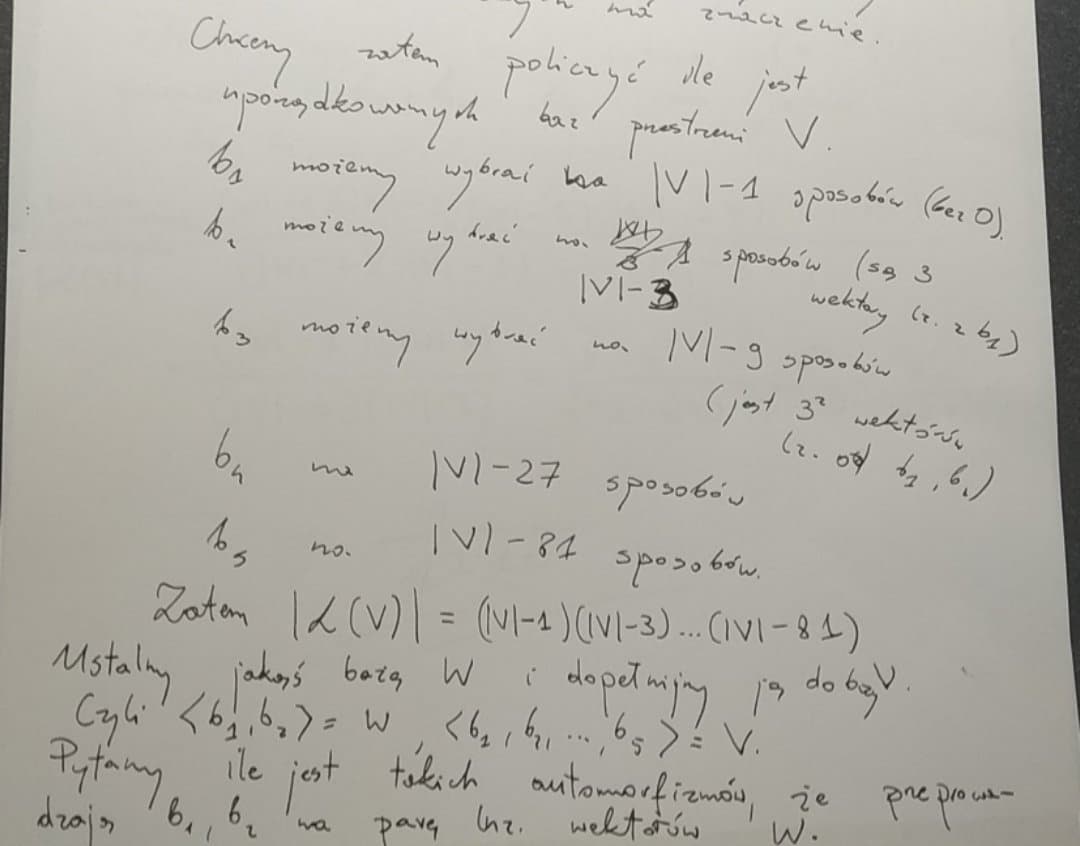 má znaczenie.
Chcemy zatem policzyć ile jest
uporządkowanych baz przestrzeni V.
b₁ możemy wybrać na |V|-1 sposobów (bez 0).
b₂ możemy wybrać na sposobów (są 3
|V|-3 wektory lz. z b₁)
b₃ możemy wybrać na |V|-9 sposobów
(jest 3² wektorów
lz. od b₁, b₂)
b₄ na |V|-27 sposobów
b₅ na |V|-81 sposobów.
Zatem |L(V)| = (|V|-1)(|V|-3)...(|V|-81)
Ustalmy jakąś bazą W i dopełnijmy ją do bazy V.
Czyli <b₁, b₂> = W, <b₁, b₂, ..., b₅> = V.
Pytamy ile jest takich automorfizmów, że przeprowa-
dzają b₁, b₂ na parę lnz. wektorów W.